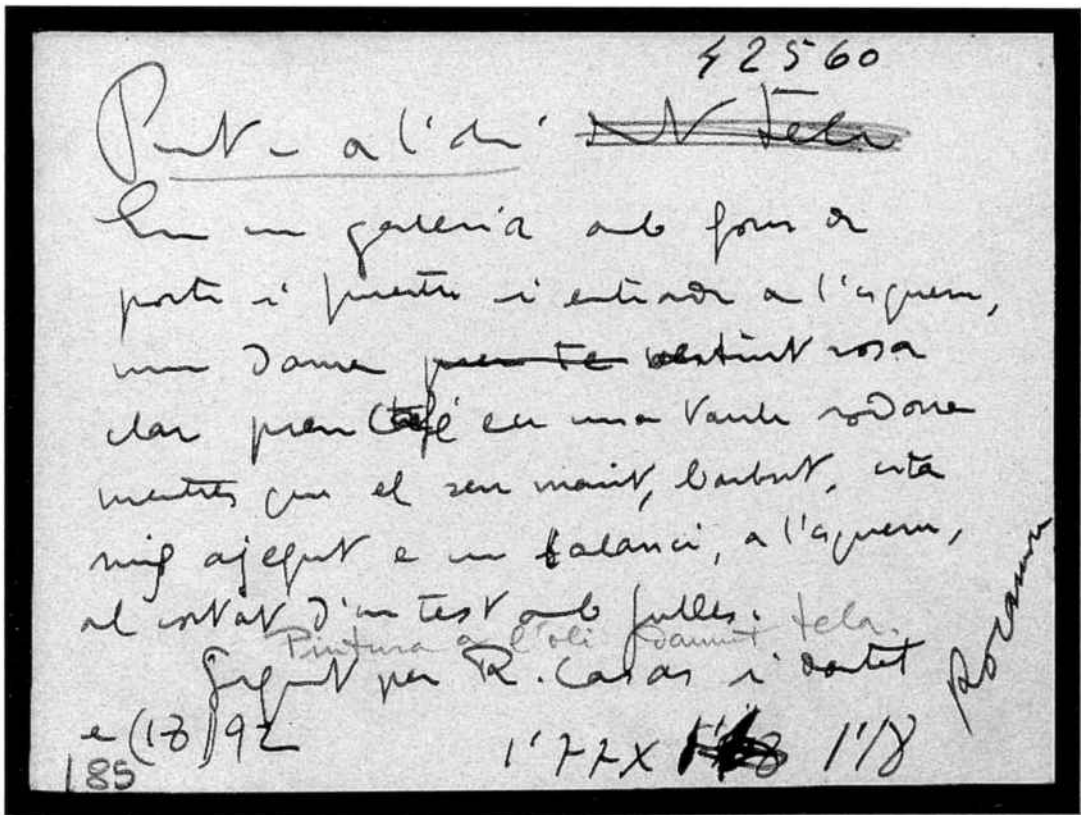 42560
Pintura a l'oli s/ tela
En una galeria amb fons de
porta i finestra i entrada a l'esquerra,
una dama vestint rosa
clar pren café en una taula rodona
mentres que el seu marit, barbut, està
mig ajegut en un balancí, a l'esquerra,
al costat d'un test amb fulles.
Pintura a l'oli damunt tela.
Signat per R. Casas i datat
en (18)92
1'77 X 1'18
185